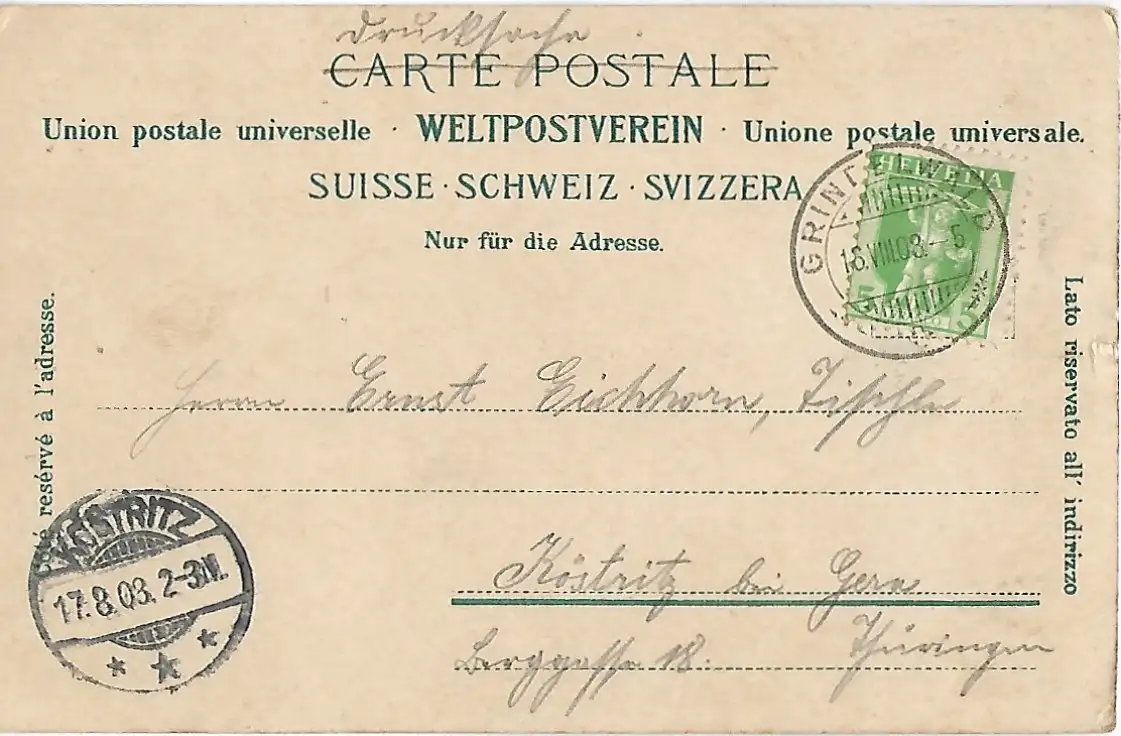 Drucksache
CARTE POSTALE
Union postale universelle · WELTPOSTVEREIN · Unione postale universale.
SUISSE · SCHWEIZ · SVIZZERA
Nur für die Adresse.
HELVETIA
5 5
GRINDELWALD
16.VIII.08.-5
Côté resérvé à l'adresse.
Lato riservato all' indirizzo
Herrn Ernst Eichhorn, Tischler
KÖSTRITZ
17.8.08. 2-3N.
Köstritz bei Gera
Berggasse 18. Thüringen